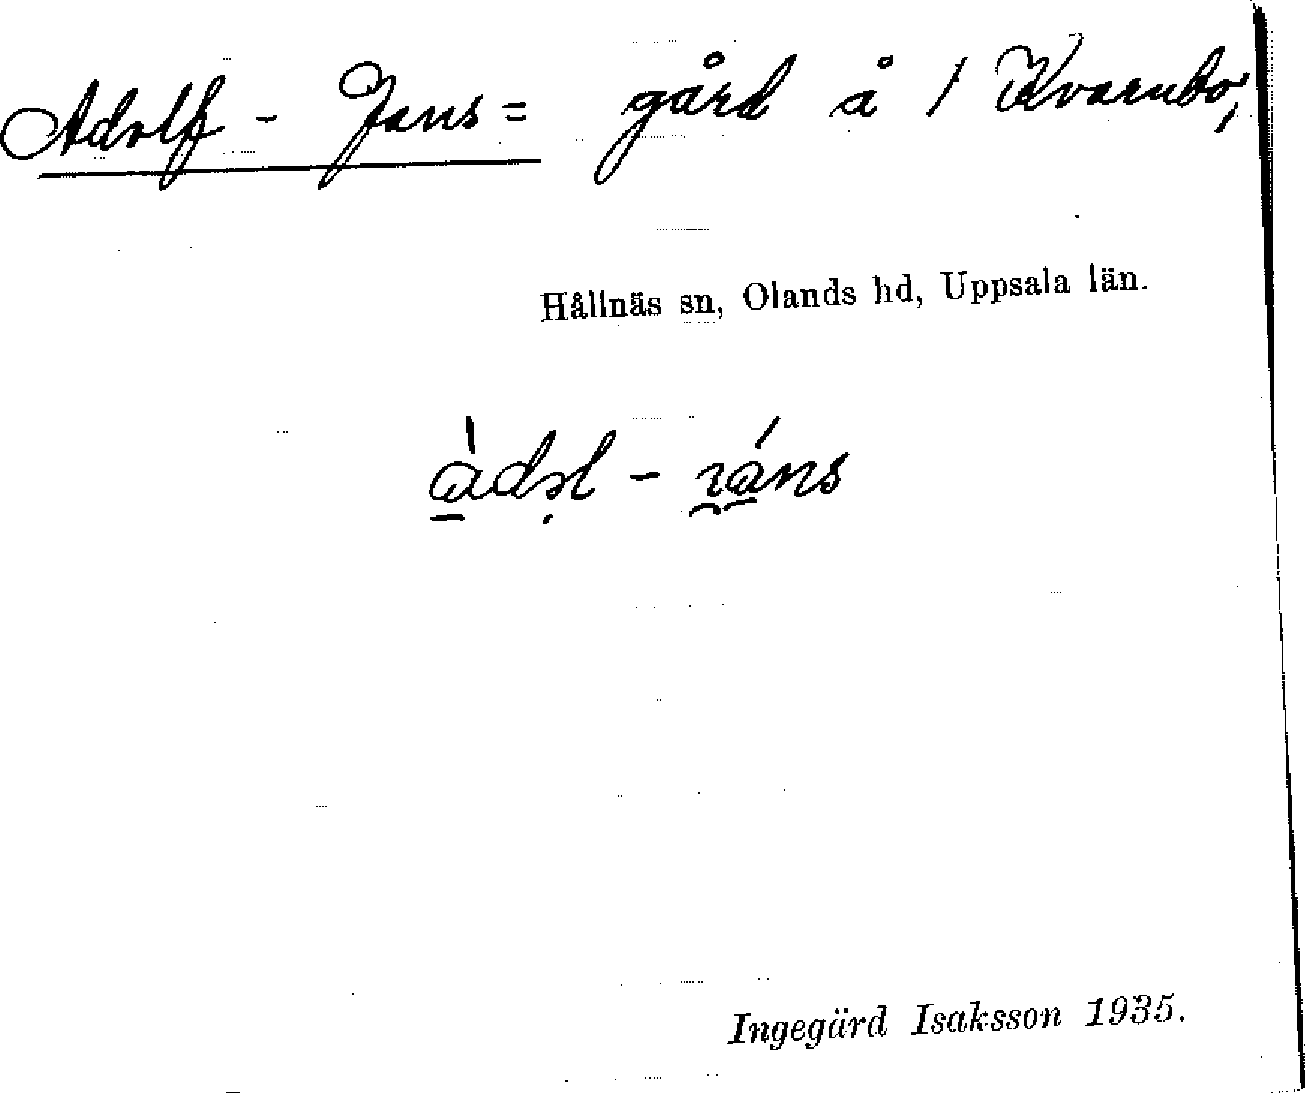 Adolf - Jans = gård å 1 Kvarnbo,
Hållnäs sn, Olands hd, Uppsala län.
àdəl - ıáns
Ingegärd Isaksson 1935.